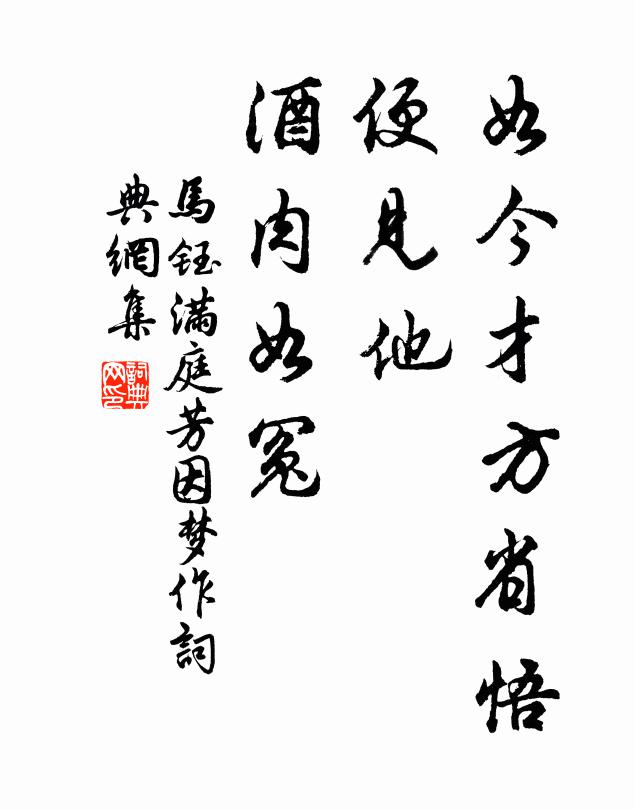 如今才方省悟
便見他
酒肉如冤
馬鈺滿庭芳因梦作詞
典網集
詞典网印